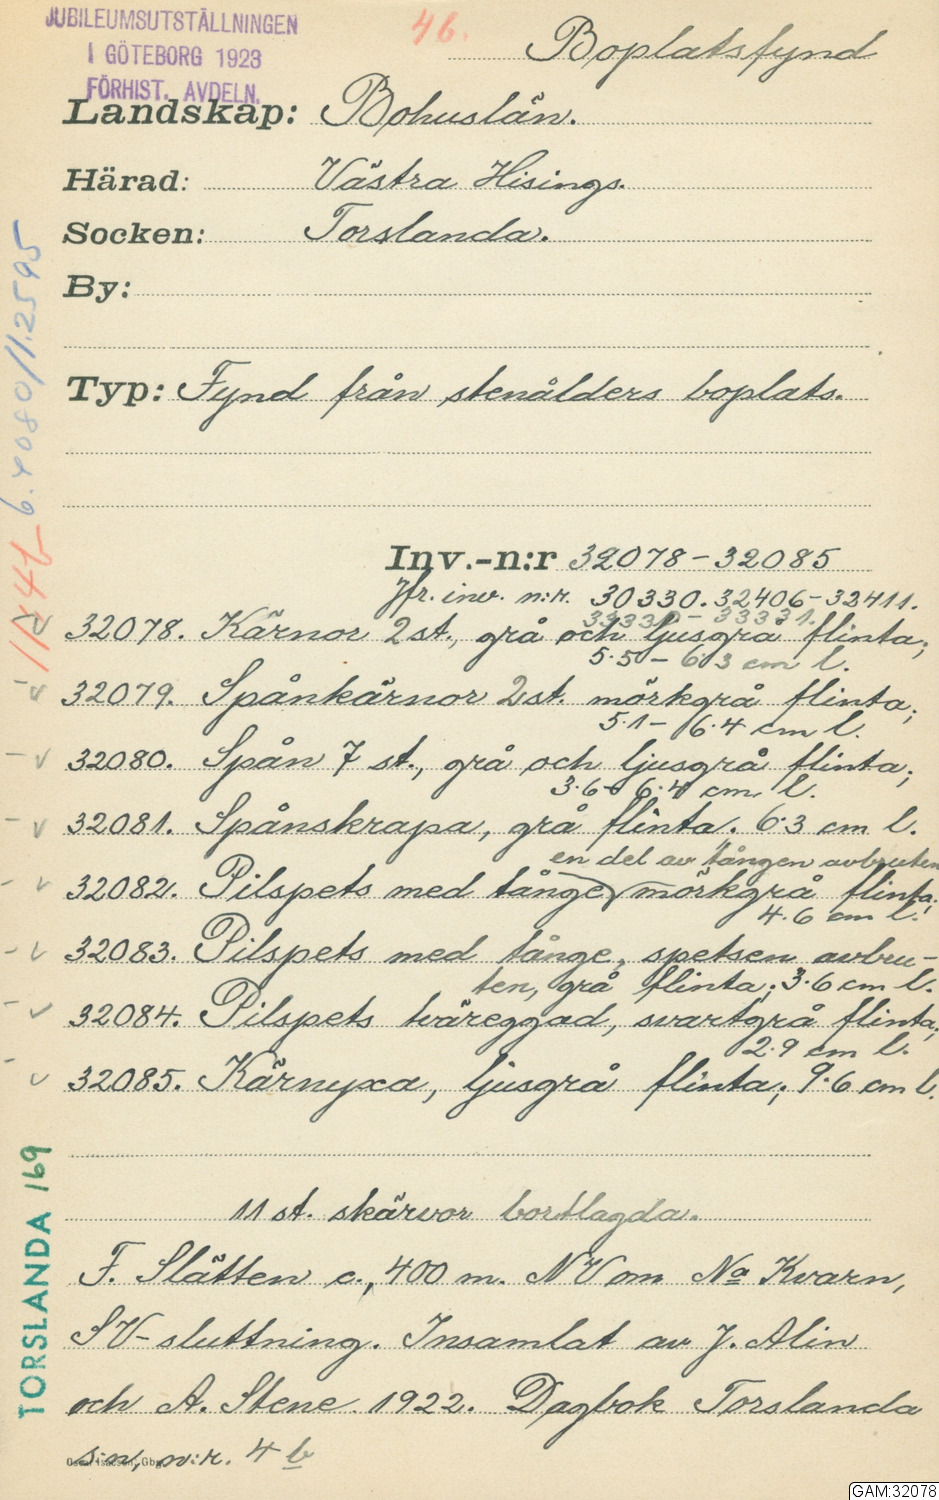 JUBILEUMSUTSTÄLLNINGEN
I GÖTEBORG 1923
FÖRHIST. AVDELN.
46.
Boplatsfynd
Landskap: Bohuslän.
Härad: Västra Hisings.
Socken: Torslanda.
By:
Typ: Fynd från stenålders boplats.
Inv.-n:r 32078-32085
Jfr. inv. n:r. 30330. 32406-32411.
33330 - 33331.
32078. Kärnor 2 st., grå och ljusgrå flinta;
5.5 - 6.3 cm l.
32079. Spånkärnor 2 st. mörkgrå flinta;
5.1 - 6.4 cm l.
32080. Spån 7 st., grå och ljusgrå flinta;
3.6 - 6.4 cm. l.
32081. Spånskrapa, grå flinta. 6.3 cm l.
en del av tången avbruten
32082. Pilspets med tånge, mörkgrå flinta;
4.6 cm l.
32083. Pilspets med tånge, spetsen avbru-
ten, grå flinta; 3.6 cm l.
32084. Pilspets tväreggad, svartgrå flinta;
2.9 cm l.
32085. Kärnyxa, ljusgrå flinta; 9.6 cm l.
11 st. skärvor bortlagda.
F. Slätten c., 400 m. NV om Na Kvarn,
SV-sluttning. Insamlat av J. Alin
och A. Stene 1922. Dagbok Torslanda
s:n, n:r. 4 b
TORSLANDA 169
GAM:32078